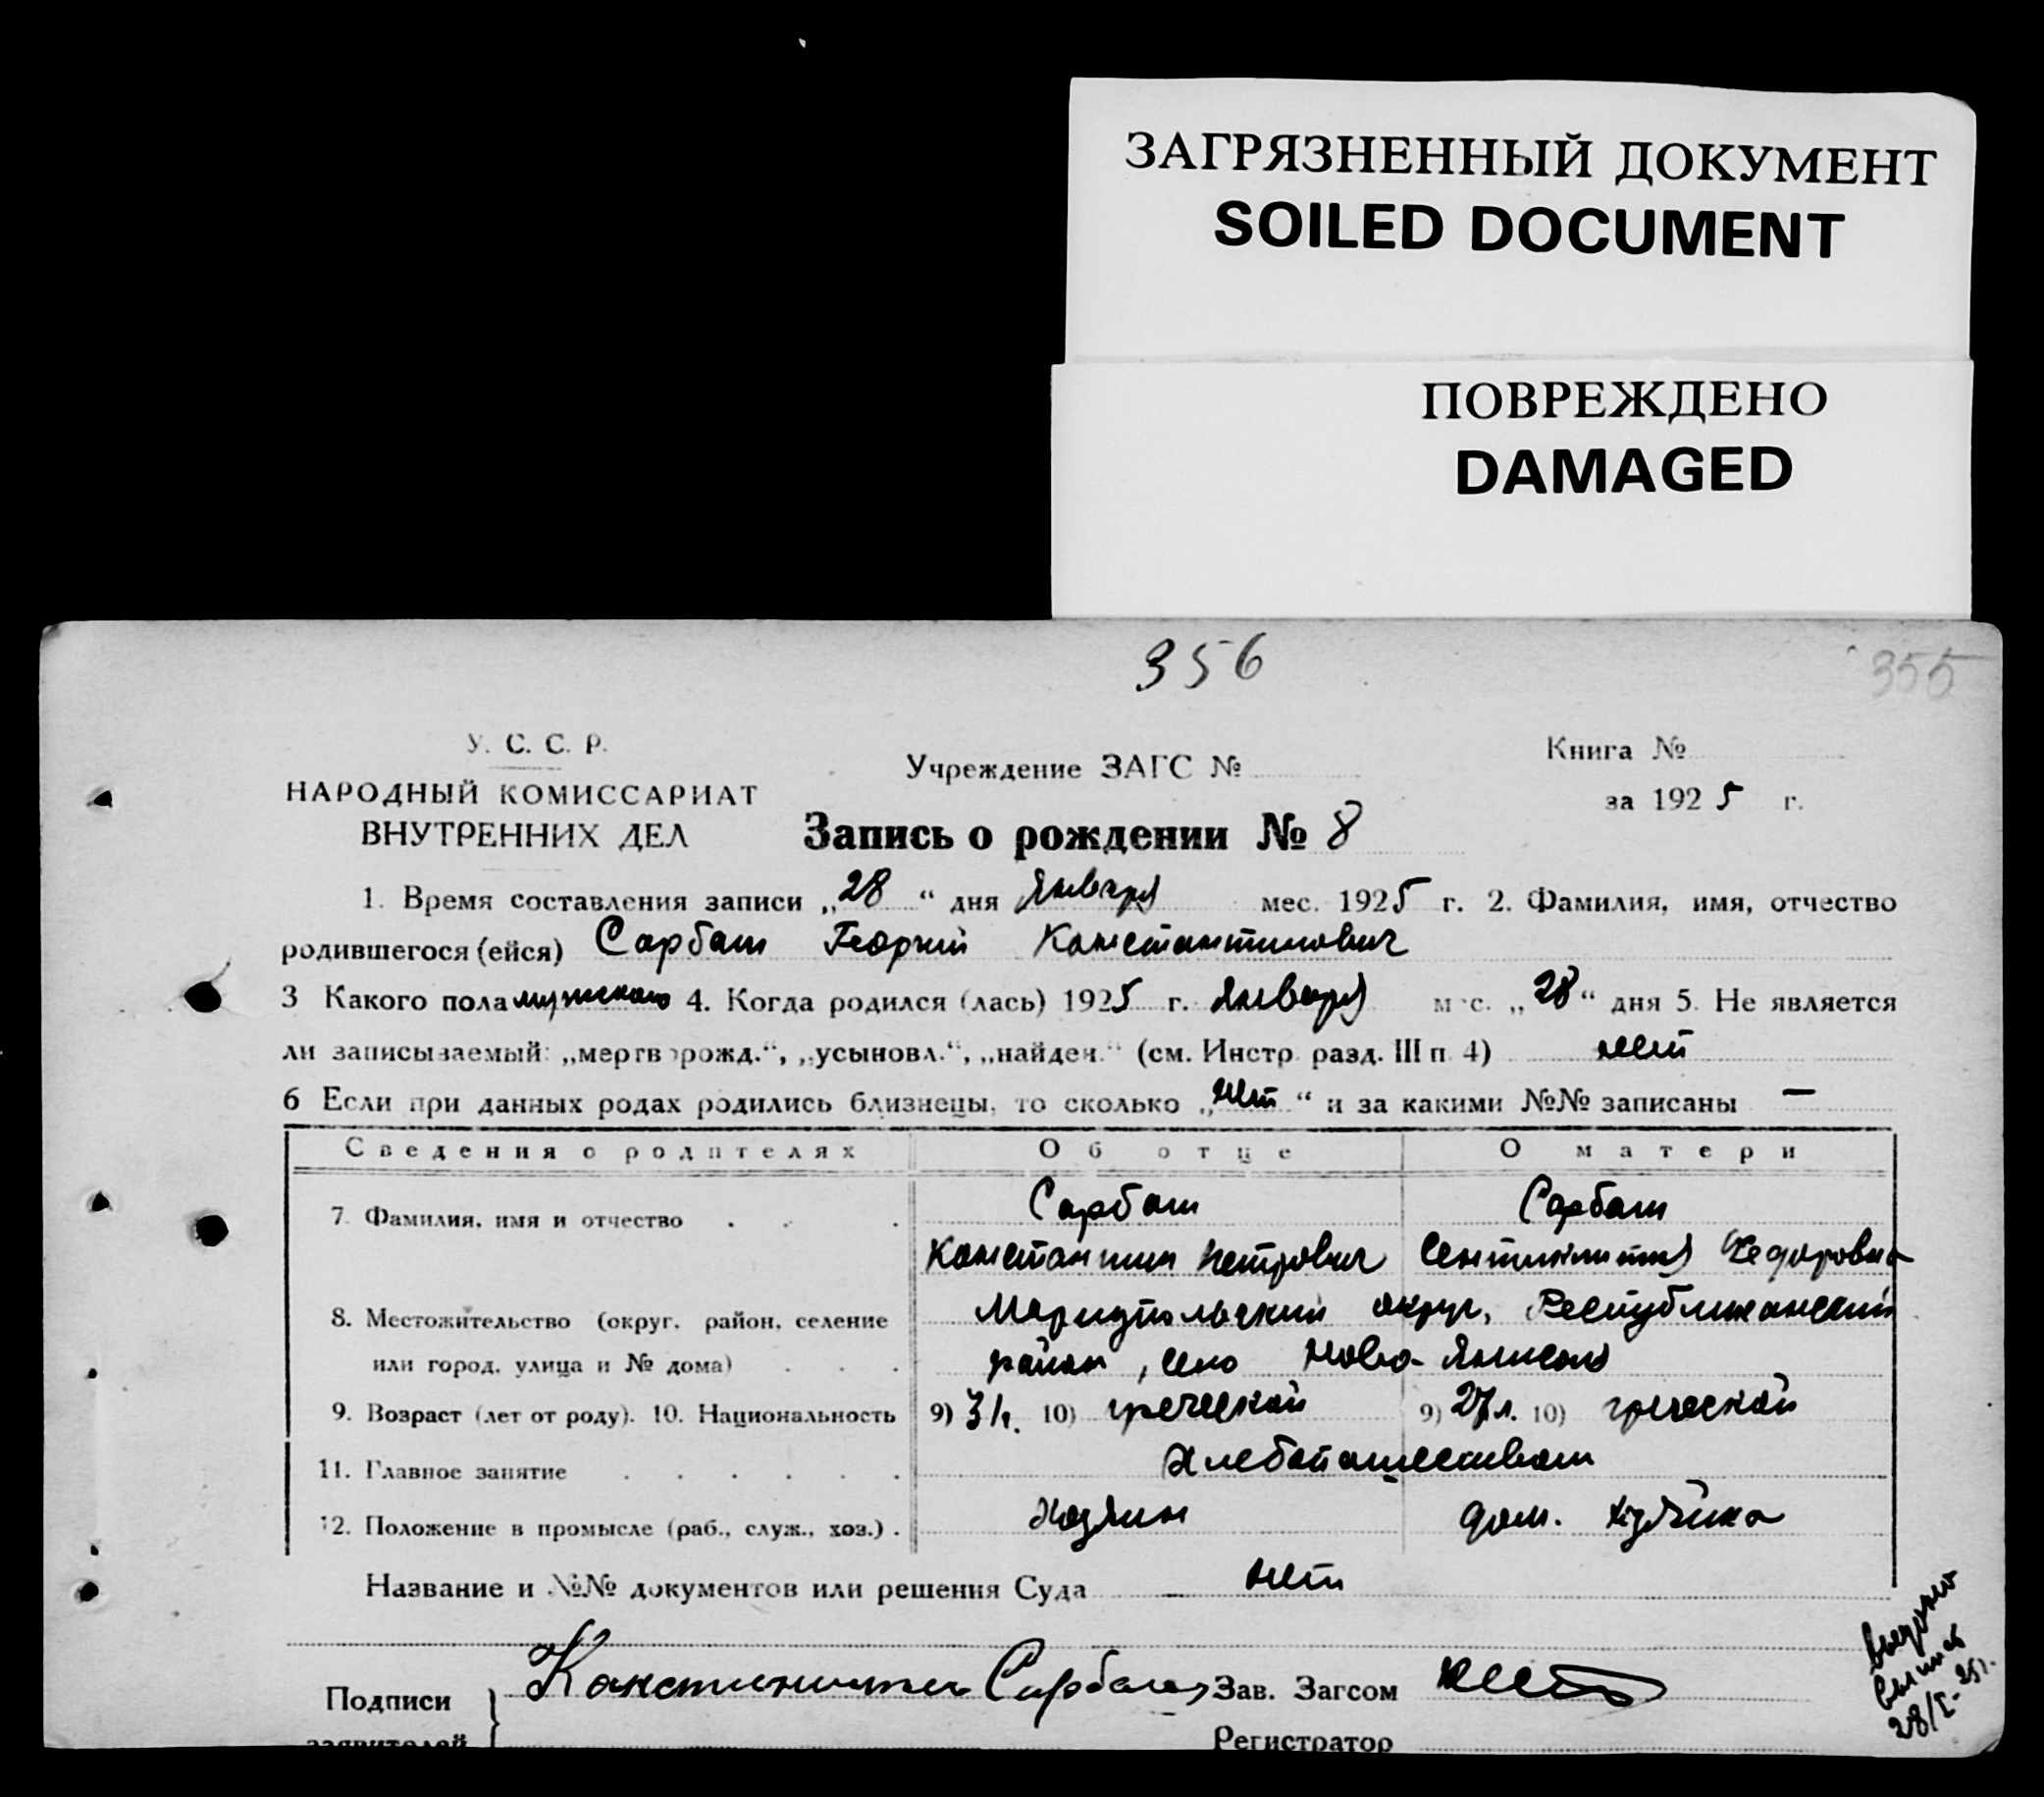 ЗАГРЯЗНЕННЫЙ ДОКУМЕНТ
SOILED DOCUMENT
ПОВРЕЖДЕНО
DAMAGED
356
355
У. С. С. Р.
НАРОДНЫЙ КОМИССАРИАТ
ВНУТРЕННИХ ДЕЛ
Учреждение ЗАГС №
Книга №
за 1925 г.
Запись о рождении № 8
1. Время составления записи „28“ дня Января мес. 1925 г. 2. Фамилия, имя, отчество
родившегося (ейся) Сарбаш Георгий Константинович
3 Какого пола мужского 4. Когда родился (лась) 1925 г. Января мес. „28“ дня 5. Не является
ли записываемый: „мертворожд.“, „усыновл.“, „найден.“ (см. Инстр. разд. III п. 4) нет
6 Если при данных родах родились близнецы, то сколько „нет“ и за какими №№ записаны —
Сведения о родителях Об отце О матери
7. Фамилия, имя и отчество Сарбаш Сарбаш
Константин Петрович Федоровна
8. Местожительство (округ, район, селение Мариупольский округ, Республиканский
или город, улица и № дома) район, село Ново-Янисоль
9. Возраст (лет от роду). 10. Национальность 9) 31. 10) греческой 9) 27 л. 10) греческой
11. Главное занятие Хлебопашеством
12. Положение в промысле (раб., служ., хоз.) Хозяин дом.
Название и №№ документов или решения Суда нет
Подписи Константин Сарбаш Зав. Загсом
заявителей Регистратор
выдано
выпись
28/I-25 г.